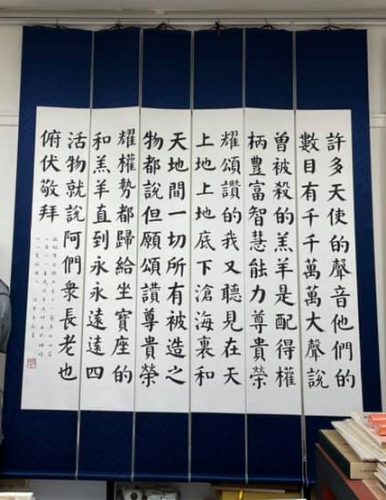 許多天使的聲音他們的
數目有千千萬萬大聲說
曾被殺的羔羊是配得權
柄豐富智慧能力尊貴榮
耀頌讚的我又聽見在天
上地上地底下滄海裏和
天地間一切所有被造之
物都說但願頌讚尊貴榮
耀權勢都歸給坐寶座的
和羔羊直到永永遠遠四
活物就說阿們衆長老也
俯伏敬拜